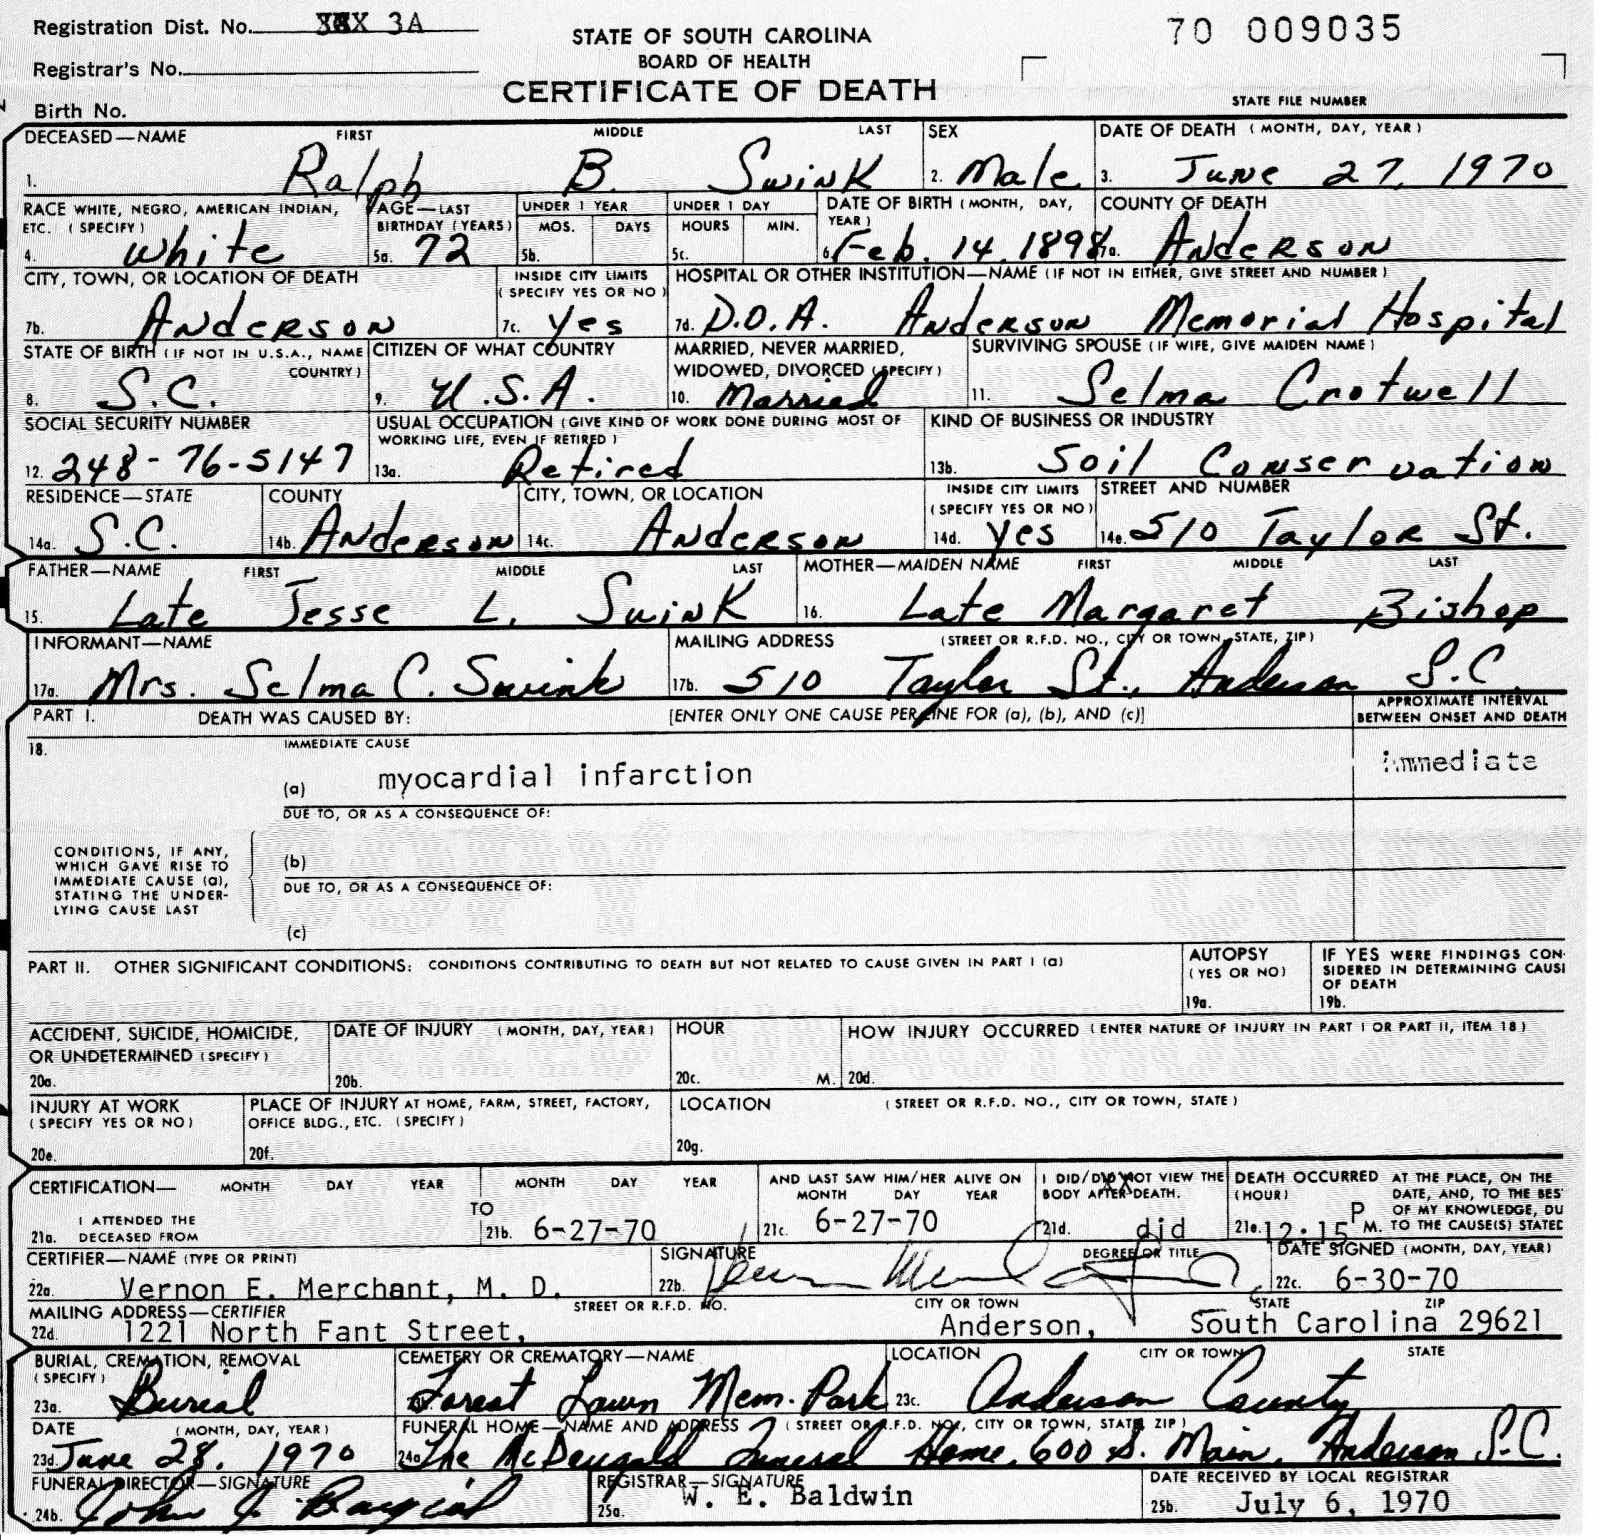 Registration Dist. No. XXX 3A
STATE OF SOUTH CAROLINA
70 009035
Registrar's No.
BOARD OF HEALTH
CERTIFICATE OF DEATH
Birth No.
STATE FILE NUMBER
DECEASED—NAME FIRST MIDDLE LAST SEX DATE OF DEATH (MONTH, DAY, YEAR)
1. Ralph B. Swink 2. Male 3. June 27, 1970
RACE WHITE, NEGRO, AMERICAN INDIAN, ETC. (SPECIFY)
4. White
AGE—LAST BIRTHDAY (YEARS)
5a. 72
UNDER 1 YEAR
MOS. DAYS
5b.
UNDER 1 DAY
HOURS MIN.
5c.
DATE OF BIRTH (MONTH, DAY, YEAR)
6. Feb. 14. 1898
COUNTY OF DEATH
7a. Anderson
CITY, TOWN, OR LOCATION OF DEATH
7b. Anderson
INSIDE CITY LIMITS
(SPECIFY YES OR NO)
7c. Yes
HOSPITAL OR OTHER INSTITUTION—NAME (IF NOT IN EITHER, GIVE STREET AND NUMBER)
7d. D.O.A. Anderson Memorial Hospital
STATE OF BIRTH (IF NOT IN U.S.A., NAME COUNTRY)
8. S.C.
CITIZEN OF WHAT COUNTRY
9. U.S.A.
MARRIED, NEVER MARRIED,
WIDOWED, DIVORCED (SPECIFY)
10. Married
SURVIVING SPOUSE (IF WIFE, GIVE MAIDEN NAME)
11. Selma Crotwell
SOCIAL SECURITY NUMBER
12. 248-76-5147
USUAL OCCUPATION (GIVE KIND OF WORK DONE DURING MOST OF
WORKING LIFE, EVEN IF RETIRED)
13a. Retired
KIND OF BUSINESS OR INDUSTRY
13b. Soil Conservation
RESIDENCE—STATE
14a. S.C.
COUNTY
14b. Anderson
CITY, TOWN, OR LOCATION
14c. Anderson
INSIDE CITY LIMITS
(SPECIFY YES OR NO)
14d. Yes
STREET AND NUMBER
14e. 510 Taylor St.
FATHER—NAME FIRST MIDDLE LAST
15. Late Jesse L. Swink
MOTHER—MAIDEN NAME FIRST MIDDLE LAST
16. Late Margaret Bishop
INFORMANT—NAME
17a. Mrs. Selma C. Swink
MAILING ADDRESS (STREET OR R.F.D. NO., CITY OR TOWN, STATE, ZIP)
17b. 510 Taylor St., Anderson S.C.
PART I. DEATH WAS CAUSED BY: [ENTER ONLY ONE CAUSE PER LINE FOR (a), (b), AND (c)]
APPROXIMATE INTERVAL
BETWEEN ONSET AND DEATH
18. IMMEDIATE CAUSE
(a) myocardial infarction immediate
DUE TO, OR AS A CONSEQUENCE OF:
CONDITIONS, IF ANY,
WHICH GAVE RISE TO
IMMEDIATE CAUSE (a),
STATING THE UNDER-
LYING CAUSE LAST
(b)
DUE TO, OR AS A CONSEQUENCE OF:
(c)
PART II. OTHER SIGNIFICANT CONDITIONS: CONDITIONS CONTRIBUTING TO DEATH BUT NOT RELATED TO CAUSE GIVEN IN PART I (a)
AUTOPSY
(YES OR NO)
19a.
IF YES WERE FINDINGS CON-
SIDERED IN DETERMINING CAUSE
OF DEATH
19b.
ACCIDENT, SUICIDE, HOMICIDE,
OR UNDETERMINED (SPECIFY)
20a.
DATE OF INJURY (MONTH, DAY, YEAR)
20b.
HOUR
20c. M.
HOW INJURY OCCURRED (ENTER NATURE OF INJURY IN PART I OR PART II, ITEM 18)
20d.
INJURY AT WORK
(SPECIFY YES OR NO)
20e.
PLACE OF INJURY AT HOME, FARM, STREET, FACTORY,
OFFICE BLDG., ETC. (SPECIFY)
20f.
LOCATION (STREET OR R.F.D. NO., CITY OR TOWN, STATE)
20g.
CERTIFICATION— MONTH DAY YEAR
I ATTENDED THE
21a. DECEASED FROM
TO
MONTH DAY YEAR
21b. 6-27-70
AND LAST SAW HIM/HER ALIVE ON
MONTH DAY YEAR
21c. 6-27-70
I DID/DID NOT VIEW THE
BODY AFTER DEATH.
21d. did
DEATH OCCURRED
(HOUR)
21e. 12:15 P M.
AT THE PLACE, ON THE
DATE, AND, TO THE BES
OF MY KNOWLEDGE, DU
TO THE CAUSE(S) STATED
CERTIFIER—NAME (TYPE OR PRINT)
22a. Vernon E. Merchant, M. D.
SIGNATURE DEGREE OR TITLE
22b.
DATE SIGNED (MONTH, DAY, YEAR)
22c. 6-30-70
MAILING ADDRESS—CERTIFIER STREET OR R.F.D. NO. CITY OR TOWN STATE ZIP
22d. 1221 North Fant Street, Anderson, South Carolina 29621
BURIAL, CREMATION, REMOVAL
(SPECIFY)
23a. Burial
CEMETERY OR CREMATORY—NAME
Forest Lawn Mem. Park
LOCATION CITY OR TOWN STATE
23c. Anderson County
DATE (MONTH, DAY, YEAR)
23d. June 28, 1970
FUNERAL HOME—NAME AND ADDRESS (STREET OR R.F.D. NO., CITY OR TOWN, STATE, ZIP)
24a. The McDougald Funeral Home, 600 S. Main, Anderson S.C.
FUNERAL DIRECTOR—SIGNATURE
24b. John J.
REGISTRAR—SIGNATURE
25a. W. E. Baldwin
DATE RECEIVED BY LOCAL REGISTRAR
25b. July 6, 1970